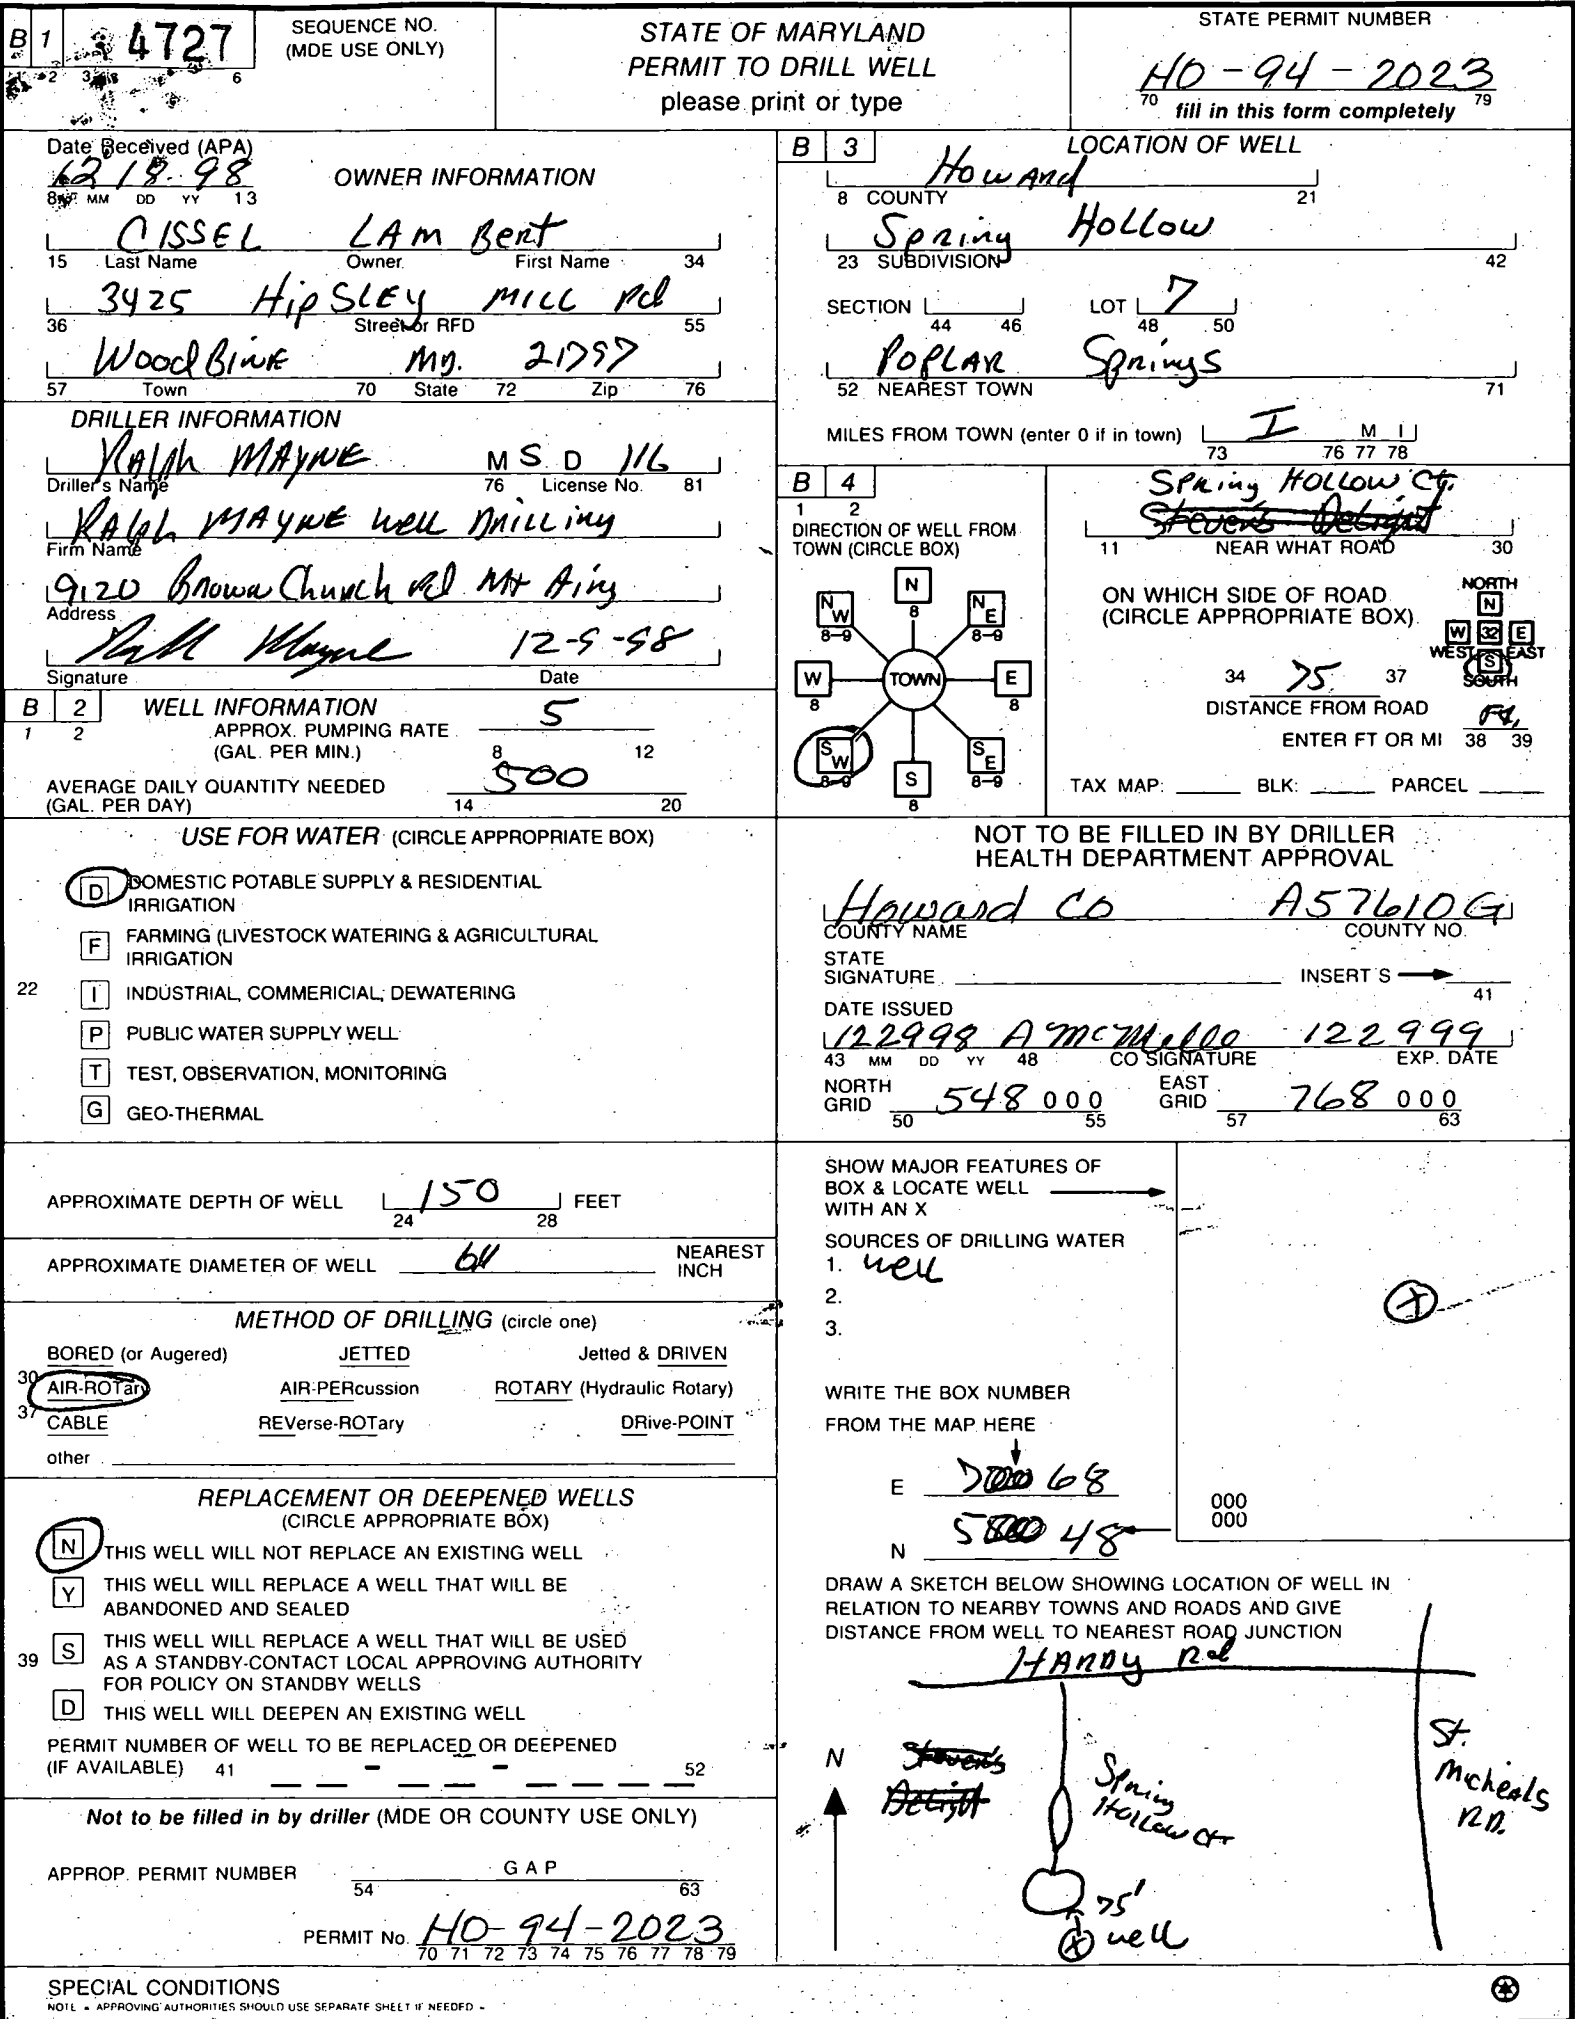 B 1 4727 SEQUENCE NO. (MDE USE ONLY)
2 3 6
STATE OF MARYLAND
PERMIT TO DRILL WELL
please print or type
STATE PERMIT NUMBER
HO-94-2023
70 fill in this form completely 79
Date Received (APA)
12 18 98
8 MM DD YY 13
OWNER INFORMATION
CISSEL LAMBert
15 Last Name Owner First Name 34
3425 HipSLEY MILL Rd
36 Street or RFD 55
WoodBine MD. 21797
57 Town 70 State 72 Zip 76
DRILLER INFORMATION
Ralph MAYNE M S D 116
Driller's Name 76 License No. 81
Ralph MAYNE Well Drilling
Firm Name
9120 Brown Church Rd Mt Airy
Address
Ralph Mayne 12-9-98
Signature Date
B 2 WELL INFORMATION
1 2
APPROX. PUMPING RATE 5
(GAL. PER MIN.) 8 12
AVERAGE DAILY QUANTITY NEEDED 500
(GAL. PER DAY) 14 20
USE FOR WATER (CIRCLE APPROPRIATE BOX)
D DOMESTIC POTABLE SUPPLY & RESIDENTIAL
IRRIGATION
F FARMING (LIVESTOCK WATERING & AGRICULTURAL
IRRIGATION
22 I INDUSTRIAL, COMMERICIAL, DEWATERING
P PUBLIC WATER SUPPLY WELL
T TEST, OBSERVATION, MONITORING
G GEO-THERMAL
APPROXIMATE DEPTH OF WELL 150 FEET
24 28
APPROXIMATE DIAMETER OF WELL 6" NEAREST
INCH
METHOD OF DRILLING (circle one)
BORED (or Augered) JETTED Jetted & DRIVEN
30 AIR-ROTary AIR-PERcussion ROTARY (Hydraulic Rotary)
37 CABLE REVerse-ROTary DRive-POINT
other
REPLACEMENT OR DEEPENED WELLS
(CIRCLE APPROPRIATE BOX)
N THIS WELL WILL NOT REPLACE AN EXISTING WELL
Y THIS WELL WILL REPLACE A WELL THAT WILL BE
ABANDONED AND SEALED
39 S THIS WELL WILL REPLACE A WELL THAT WILL BE USED
AS A STANDBY-CONTACT LOCAL APPROVING AUTHORITY
FOR POLICY ON STANDBY WELLS
D THIS WELL WILL DEEPEN AN EXISTING WELL
PERMIT NUMBER OF WELL TO BE REPLACED OR DEEPENED
(IF AVAILABLE) 41 - - 52
Not to be filled in by driller (MDE OR COUNTY USE ONLY)
APPROP. PERMIT NUMBER G A P
54 63
PERMIT No. HO-94-2023
70 71 72 73 74 75 76 77 78 79
SPECIAL CONDITIONS
NOTE - APPROVING AUTHORITIES SHOULD USE SEPARATE SHEET IF NEEDED -
B 3 LOCATION OF WELL
Howard
8 COUNTY 21
Spring Hollow
23 SUBDIVISION 42
SECTION LOT 7
44 46 48 50
POPLAR Springs
52 NEAREST TOWN 71
MILES FROM TOWN (enter 0 if in town) I M I
73 76 77 78
B 4
1 2
DIRECTION OF WELL FROM
TOWN (CIRCLE BOX)
N 8
NW 8-9 NE 8-9
W 8 TOWN E 8
SW 8-9 SE 8-9
S 8
Spring HOLLOW Ct.
Steven's Delight
11 NEAR WHAT ROAD 30
ON WHICH SIDE OF ROAD
(CIRCLE APPROPRIATE BOX)
NORTH
N
W 32 E
WEST S EAST
SOUTH
34 75 37
DISTANCE FROM ROAD
Ft.
ENTER FT OR MI 38 39
TAX MAP: BLK: PARCEL
NOT TO BE FILLED IN BY DRILLER
HEALTH DEPARTMENT APPROVAL
Howard Co A57610G
COUNTY NAME COUNTY NO.
STATE
SIGNATURE INSERT S
41
DATE ISSUED
122998 A McMello 122999
43 MM DD YY 48 CO SIGNATURE EXP. DATE
NORTH GRID 548 000 EAST GRID 768 000
50 55 57 63
SHOW MAJOR FEATURES OF
BOX & LOCATE WELL
WITH AN X
X
SOURCES OF DRILLING WATER
1. well
2.
3.
WRITE THE BOX NUMBER
FROM THE MAP HERE
E 7 68
N 5 48
000
000
DRAW A SKETCH BELOW SHOWING LOCATION OF WELL IN
RELATION TO NEARBY TOWNS AND ROADS AND GIVE
DISTANCE FROM WELL TO NEAREST ROAD JUNCTION
HARDY Rd
N
Steven's
Delight
Spring
Hollow Ct
St.
Micheals
RD.
75'
X well